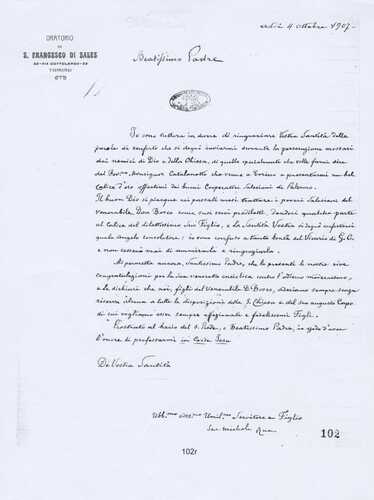 ORATORIO
DI
S. FRANCESCO DI SALES
32-VIA COTTOLENGO-32
TORINO
addì 4 Ottobre 1907.
Beatissimo Padre
Io sono tuttora in dovere di ringraziare Vostra Santità della
parola di conforto che si degnò inviarmi durante la persecuzione mossaci
dai nemici di Dio e della Chiesa, di quelle specialmente che volle farmi dire
dal Rev.mo Monsignor Catalanotto che venne a Torino a presentarmi un bel
Calice d'oro offertomi dai buoni Cooperatori Salesiani di Palermo.
Il buon Dio si piacque nei passati mesi trattare i poveri Salesiani del
Venerabile Don Bosco come suoi servi prediletti, dandoci qualche parte
al calice del dilettissimo suo Figlio, e la Santità Vostra si degnò inferiore
quale Angelo consolatore; io sono confuso a tanta bontà del Vicario di G. C.
e non cesserò mai di ammirarla e ringraziarla.
Mi permetta ancora, Santissimo Padre, che le presenti le nostre vive
congratulazioni per la sua veneratà enciclica contro l'odierno modernismo,
e le dichiari che noi, figli del Venerabile D. Bosco, aderiamo sempre senza
riserva alcuna a tutte le disposizioni della S. Chiesa e del suo augusto Capo
di cui vogliamo esser sempre affezionati e fedelissimi Figli.
Prostrato al bacio del S. Piede, o Beatissimo Padre, io godo d'aver
l'onore di professarmi in Corde Jesu
Di Vostra Santità
Obb.mo Umil.mo Servitore e Figlio
Sac. Michele Rua
102
102r